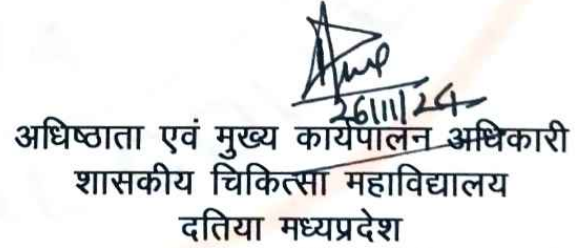 26/11/24
अधिष्ठाता एवं मुख्य कार्यपालन अधिकारी
शासकीय चिकित्सा महाविद्यालय
दतिया मध्यप्रदेश